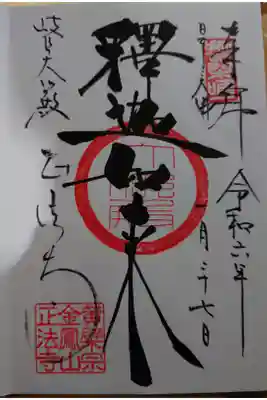 奉拝
令和六年
一月二十七日
釋迦如来
大殿 正法寺
黄檗宗
金鳳山
正法寺